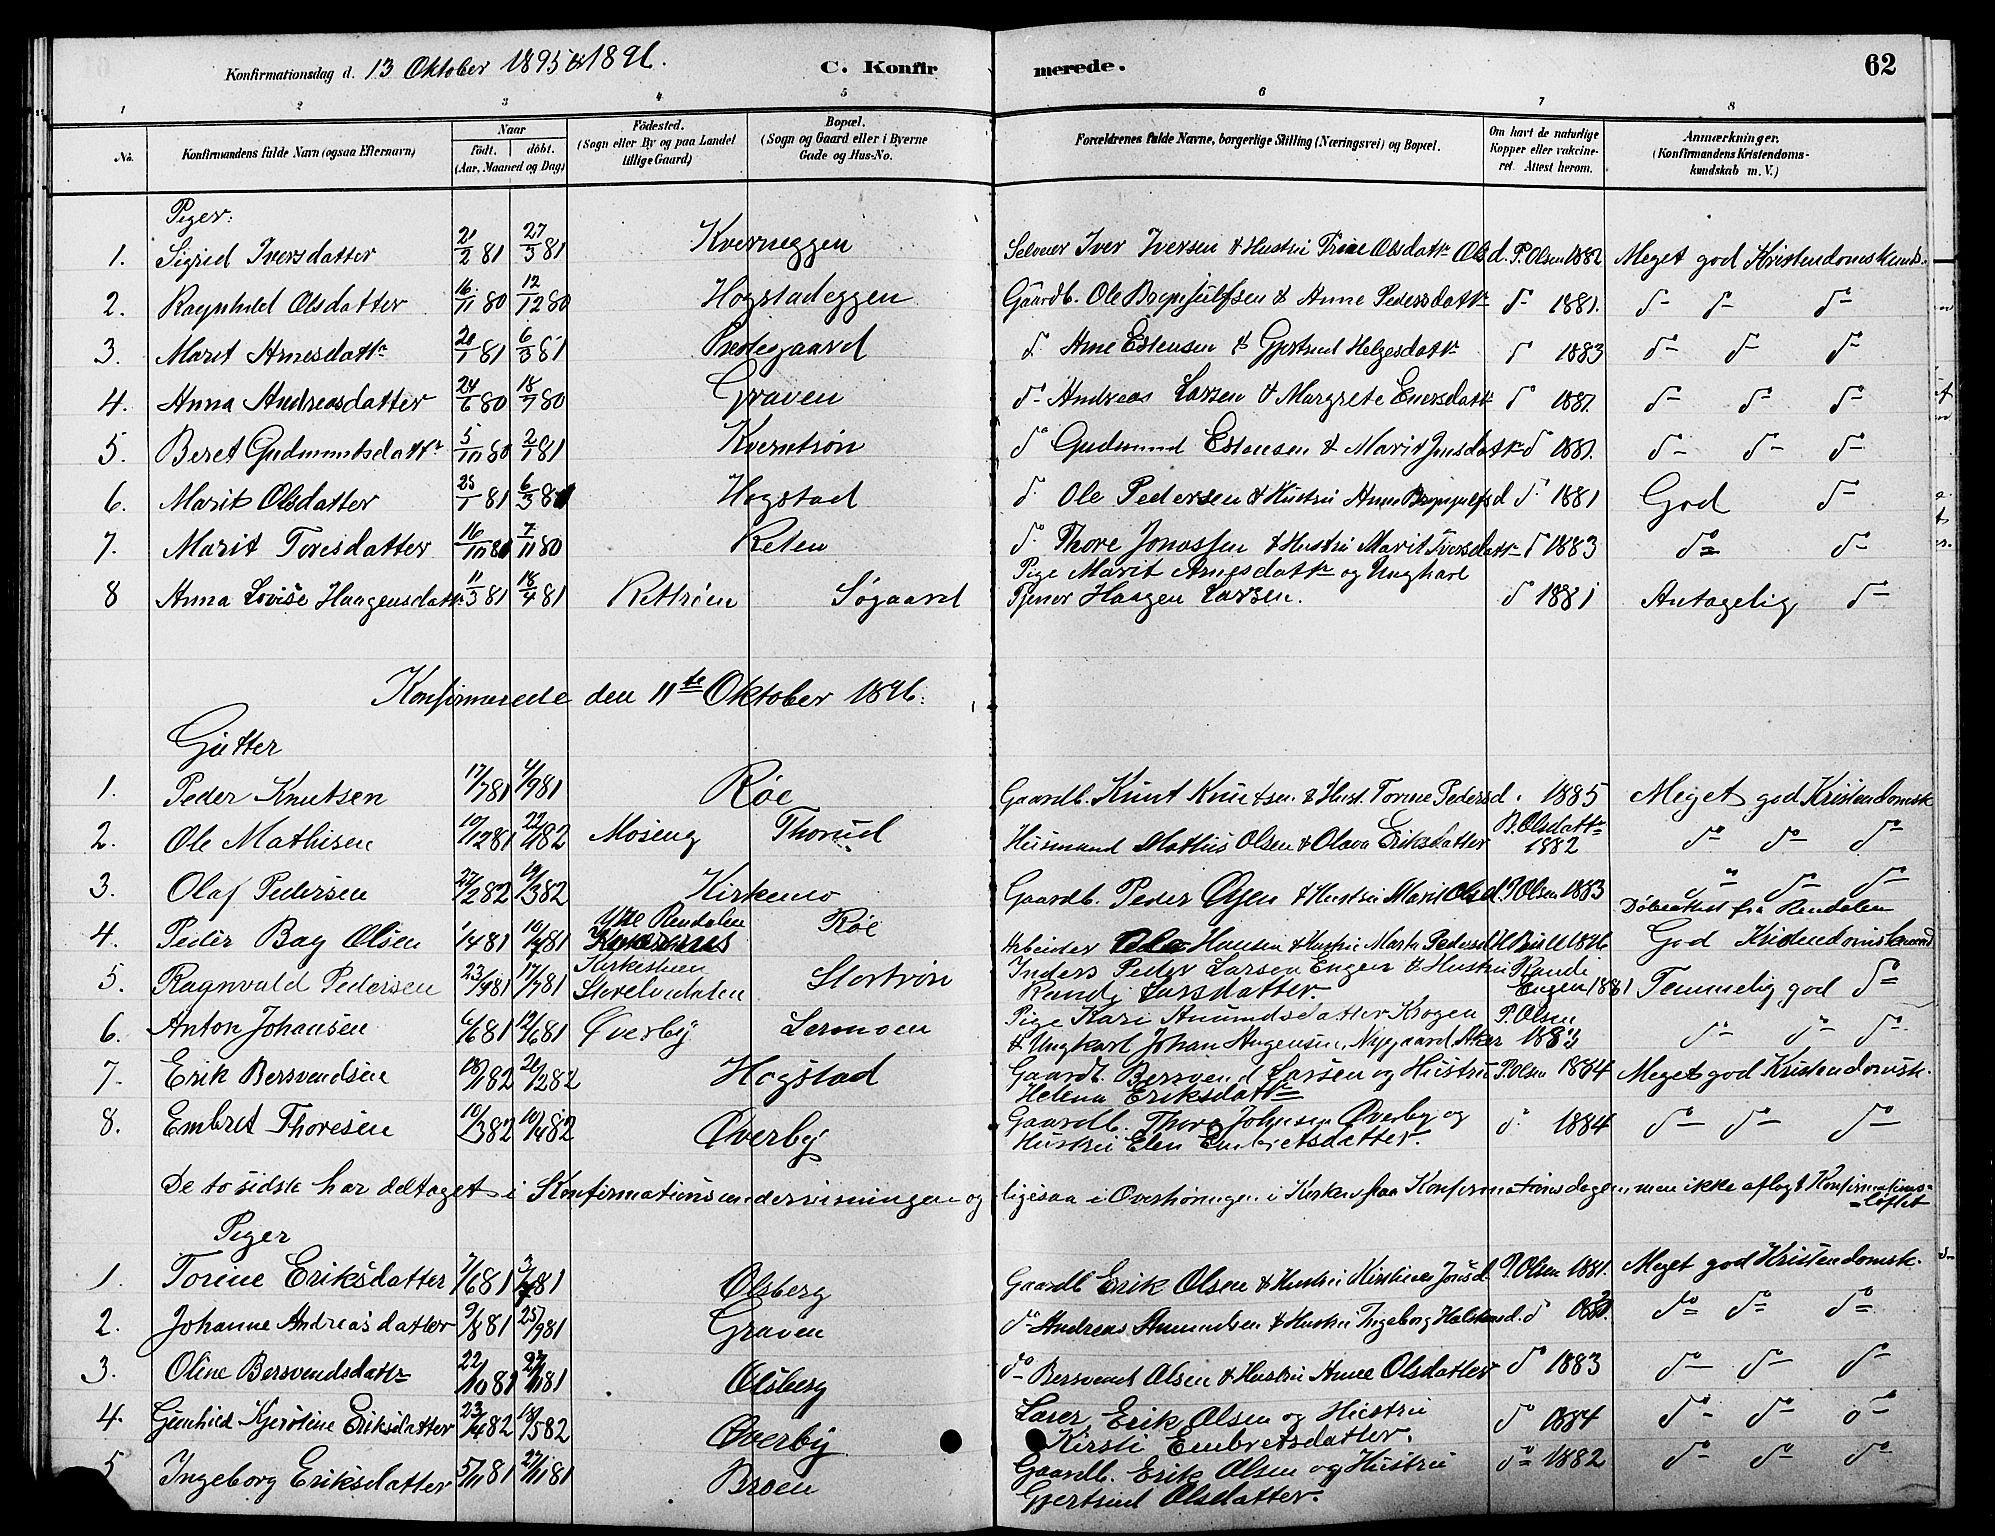 Konfirmationsdag d. 13 Oktober 1895 & 1896. C. Konfirmerede. 62
1 2 3 4 5 6 7 8
No. Konfirmandens fulde Navn (ogsaa Efternavn) Naar født. døbt. (Aar, Maaned og Dag) Fødested. (Sogn eller By og paa Landet tillige Gaard) Bopæl. (Sogn og Gaard eller i Byerne Gade og Hus-No. Forældrenes fulde Navne, borgerlige Stilling (Næringsvei) og Bopæl. Om havt de naturlige Kopper eller vakcineret. Attest herom. Anmærkninger. (Konfirmandens Kristendomskundskab m. V.)
Piger:
1. Sigrid Iversdatter 21/2 81 27/3 81 Kverneggen Selveier Iver Iversen & Hustru Trine Olsdatr Olsd. P. Olsen 1882 Meget god Kristendomskunds.
2. Ragnhild Olsdatter 16/11 80 12/12 80 Hogstadeggen Gaardb. Ole Brynjulfsen & Anne Pedersdatr do 1881. do do do
3. Marit Arnesdatr 20/1 81 6/3 81 Prestegaard do Arne Estensen & Gjertrud Helgesdatr do 1883 do do do
4. Anna Andreasdatter 24/6 80 18/7 80 Graven do Andreas Larsen & Margrete Enersdatr do 1881. do do do
5. Beret Gudmundsdatr 5/10 80 2/1 81 Kverntrøn do Gudmund Estensen & Marit Jonsdatr do 1881. do do do
6. Marit Olsdatter 23/1 81 6/3 81 Hogstad do Ole Pedersen & Hustru Anne Brynjulfsd do 1881 God do
7. Marit Toresdatter 16/10 80 7/11 80 Reten do Thore Jonassen & Hustru Marit Iversdatr do 1883 do do
8 Anna Lovise Haagensdatr 11/3 81 18/4 81 Rettrøen Søgaard Pige Marit Arnesdatr og Ungkarl
Tjener Haagen Larsen. do 1881 Antagelig do
Konfirmerede den 11te Oktober 1896.
Gutter
1. Peder Knutsen 17/7 81 4/9 81 Røe Gaardb. Knut Knutsen & Hust. Torine Pedersd. 1885 Meget god Kristendomsk
2. Ole Mathisen 10/12 81 22/1 82 Moseng Thorud Husmand Mathis Olsen & Olava Eriksdatter B. Olsdatr 1882 do do do
3. Olaf Pedersen 22/2 82 19/3 82 Kirkemo Gaardb. Peder Olsen & Hustru Marit Olsd. P. Olsen 1883 " do do
Døbeattest fra Rendalen
4. Peder Bay Olsen 1/4 81 10/7 81 Ytre Rendalen Røe Arbeider Hansen & Hustru Marte Pedersd 1896 God Kristendomskund
5. Ragnvald Pedersen 23/4 81 17/7 81 Kirkestuen Storelvdalen Stortrøn Inders Peder Larsen Engen & Hustru
Randi Larsdatter. Randi Engen 1881 Temmelig god do
6. Anton Johansen 6/6 81 12/6 81 Øverby Lermoen Pige Kari Amundsdatter Krogen
& Ungkarl Johan Nygaard, Aker P. Olsen 1883 do do do
7. Erik Bersvendsen 18/1 82 26/2 82 Hogstad Gaardb. Bersvend Larsen og Hustru
Helena Eriksdatr P. Olsen 1884 Meget god Kristendomsk.
8. Embret Thoresen 10/3 82 10/4 82 Øverby Gaardb. Thore Johnsen Øverby og
Hustru Elen Embretsdatter. do 1884 do do do
De to sidste har deltaget i Konfirmationsundervisningen og ligesaa i Overhøringen i Kirken paa Konfirmationsdagen men ikke aflagt Konfirmations-
=løftet
Piger
1. Torine Eriksdatter 7/6 81 3/7 81 Olsberg Gaardb Erik Olsen & Hustru Kirstine Jonsd. P. Olsen 1881. Meget god Kristendomsk.
2. Johanne Andreasdatter 9/8 81 25/9 81 Graven do Andreas Amundsen & Hustru Ingeborg Halstensd. do do do do
3. Oline Bersvendsdatr 22/10 81 27/11 81 Olsberg do Bersvend Olsen & Hustru Anne Olsdatter do 1883 do do do
4. Gunhild Kjerstine Eriksdatter 23/4 82 18/5 82 Øverby Larer Erik Olsen og Hustru
Kirsti Embretsdatter. do 1884 do do do
5 Ingeborg Eriksdatter 5/11 81 27/11 81 Brøen Gaardb. Erik Olsen og Hustru
Gjertrud Olsdatter. do 1882 do do do